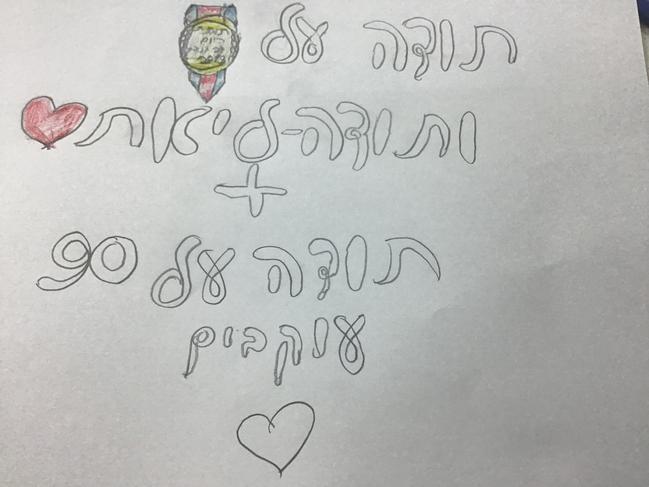 תודה על
ותודה-ל יאת
+
תודה על 90
עוקבים